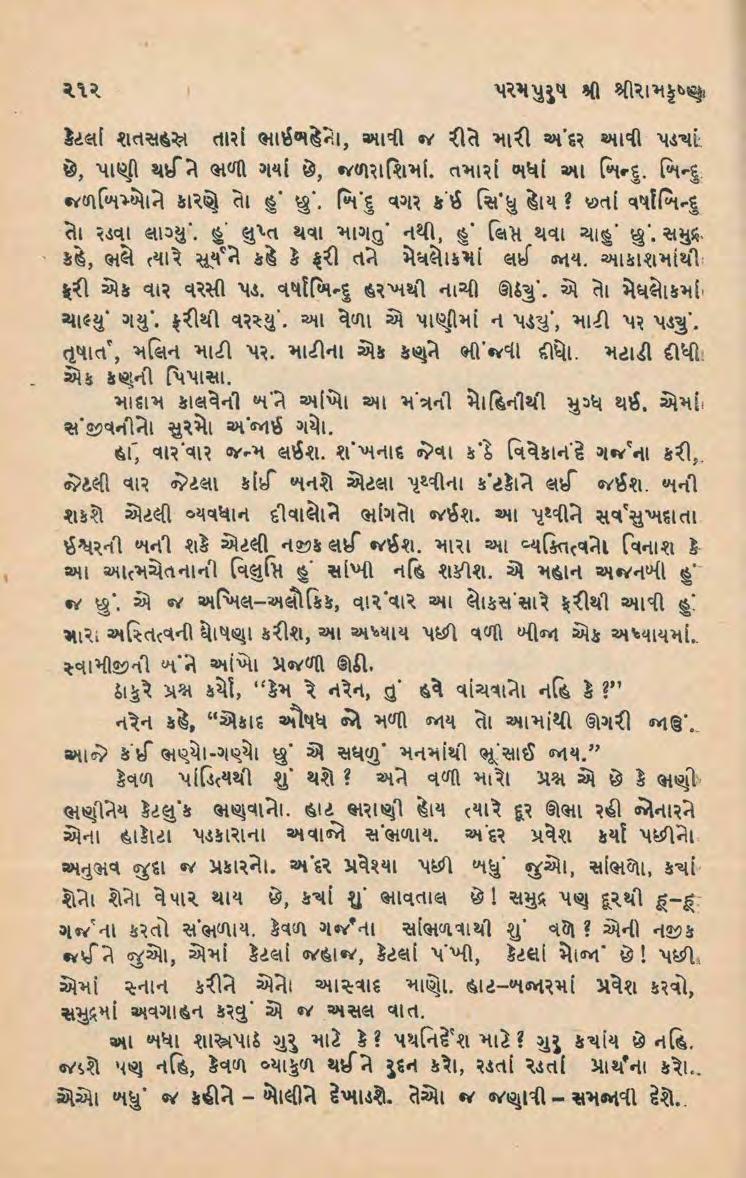 ૨૧૨ પરમપુરુષ શ્રી શ્રીરામકૃષ્ણ
કેટલાં શતસહસ્ર તારાં ભાઈબહેનો, આવી જ રીતે મારી અંદર આવી પડચાં
છે, પાણી થઈને ભળી ગયાં છે, જળરાશિમાં. તમારાં બધાં આ બિન્દુ. બિન્દુ
જળબિમ્બોને કારણે તો હું છું. બિંદુ વગર કંઈ સિંધુ હોય ? છતાં વર્ષાબિન્દુ
તો રડવા લાગ્યું. હું લુપ્ત થવા માગતું નથી, હું લિપ્ત થવા ચાહું છું. સમુદ્ર
કહે, ભલે ત્યારે સૂર્યને કહે કે ફરી તને મેઘલોકમાં લઈ જાય. આકાશમાંથી
ફરી એક વાર વરસી પડ. વર્ષાબિન્દુ હરખથી નાચી ઊઠચું. એ તો મેઘલોકમાં
ચાલ્યું ગયું. ફરીથી વરસ્યું. આ વેળા એ પાણીમાં ન પડચું, માટી પર પડચું.
તૃષાર્ત, મલિન માટી પર. માટીના એક કણને ભીંજવી દીધો. મટાડી દીધી
એક કણની પિપાસા.
માદામ કાલવેની બંને આંખો આ મંત્રની મોહિનીથી મુગ્ધ થઈ. એમાં
સંજીવનીનો સુરમો અંજાઈ ગયો.
હાં, વારંવાર જન્મ લઈશ. શંખનાદ જેવા કંઠે વિવેકાનંદે ગર્જના કરી,
જેટલી વાર જેટલા કાંઈ બનશે એટલા પૃથ્વીના કંટકોને લઈ જઈશ. બની
શકશે એટલી વ્યવધાન દીવાલોને ભાંગતો જઈશ. આ પૃથ્વીને સર્વસુખદાતા
ઈશ્વરની બની શકે એટલી નજીક લઈ જઈશ. મારા આ વ્યક્તિત્વનો વિનાશ કે
આ આત્મચેતનાની વિલુપ્તિ હું સાંખી નહિ શકીશ. એ મહાન અજનબી હું
જ છું. એ જ અખિલ–અલૌકિક, વારંવાર આ લોકસંસારે ફરીથી આવી હું
મારા અસ્તિત્વની ઘોષણા કરીશ, આ અધ્યાય પછી વળી બીજા એક અધ્યાયમાં.
સ્વામીજીની બંને આંખો પ્રજળી ઊઠી.
ઠાકુરે પ્રશ્ન કર્યો, “કેમ રે નરેન, તું હવે વાંચવાનો નહિ કે ?”
નરેન કહે, “એકાદ ઔષધ જો મળી જાય તો આમાંથી ઊગરી જાઉં.
આજે કંઈ ભણ્યો-ગણ્યો છું એ સઘળું મનમાંથી ભૂંસાઈ જાય.”
કેવળ પાંડિત્યથી શું થશે ? અને વળી મારો પ્રશ્ન એ છે કે ભણી
ભણીનેય કેટલુંક ભણવાનો. હાટ ભરાણી હોય ત્યારે દૂર ઊભા રહી જોનારને
એના હાકોટા પડકારાના અવાજો સંભળાય. અંદર પ્રવેશ કર્યા પછીનો
અનુભવ જુદા જ પ્રકારનો. અંદર પ્રવેશ્યા પછી બધું જુઓ, સાંભળો, કચાં
શેનો શેનો વેપાર થાય છે, કચાં શું ભાવતાલ છે ! સમુદ્ર પણ દૂરથી હૂ–હૂ
ગર્જના કરતો સંભળાય. કેવળ ગર્જના સાંભળવાથી શું વળે ? એની નજીક
જઈને જુઓ, એમાં કેટલાં જહાજ, કેટલાં પંખી, કેટલાં મોજાં છે ! પછી
એમાં સ્નાન કરીને એનો આસ્વાદ માણો. હાટ–બજારમાં પ્રવેશ કરવો,
સમુદ્રમાં અવગાહન કરવું એ જ અસલ વાત.
આ બધા શાસ્ત્રપાઠ ગુરુ માટે કે ? પથનિર્દેશ માટે ? ગુરુ કચાંય છે નહિ.
જડશે પણ નહિ, કેવળ વ્યાકુળ થઈને રુદન કરો, રડતાં રડતાં પ્રાર્થના કરો.
એઓ બધું જ કહીને – બોલીને દેખાડશે. તેઓ જ જણાવી – સમજાવી દેશે.